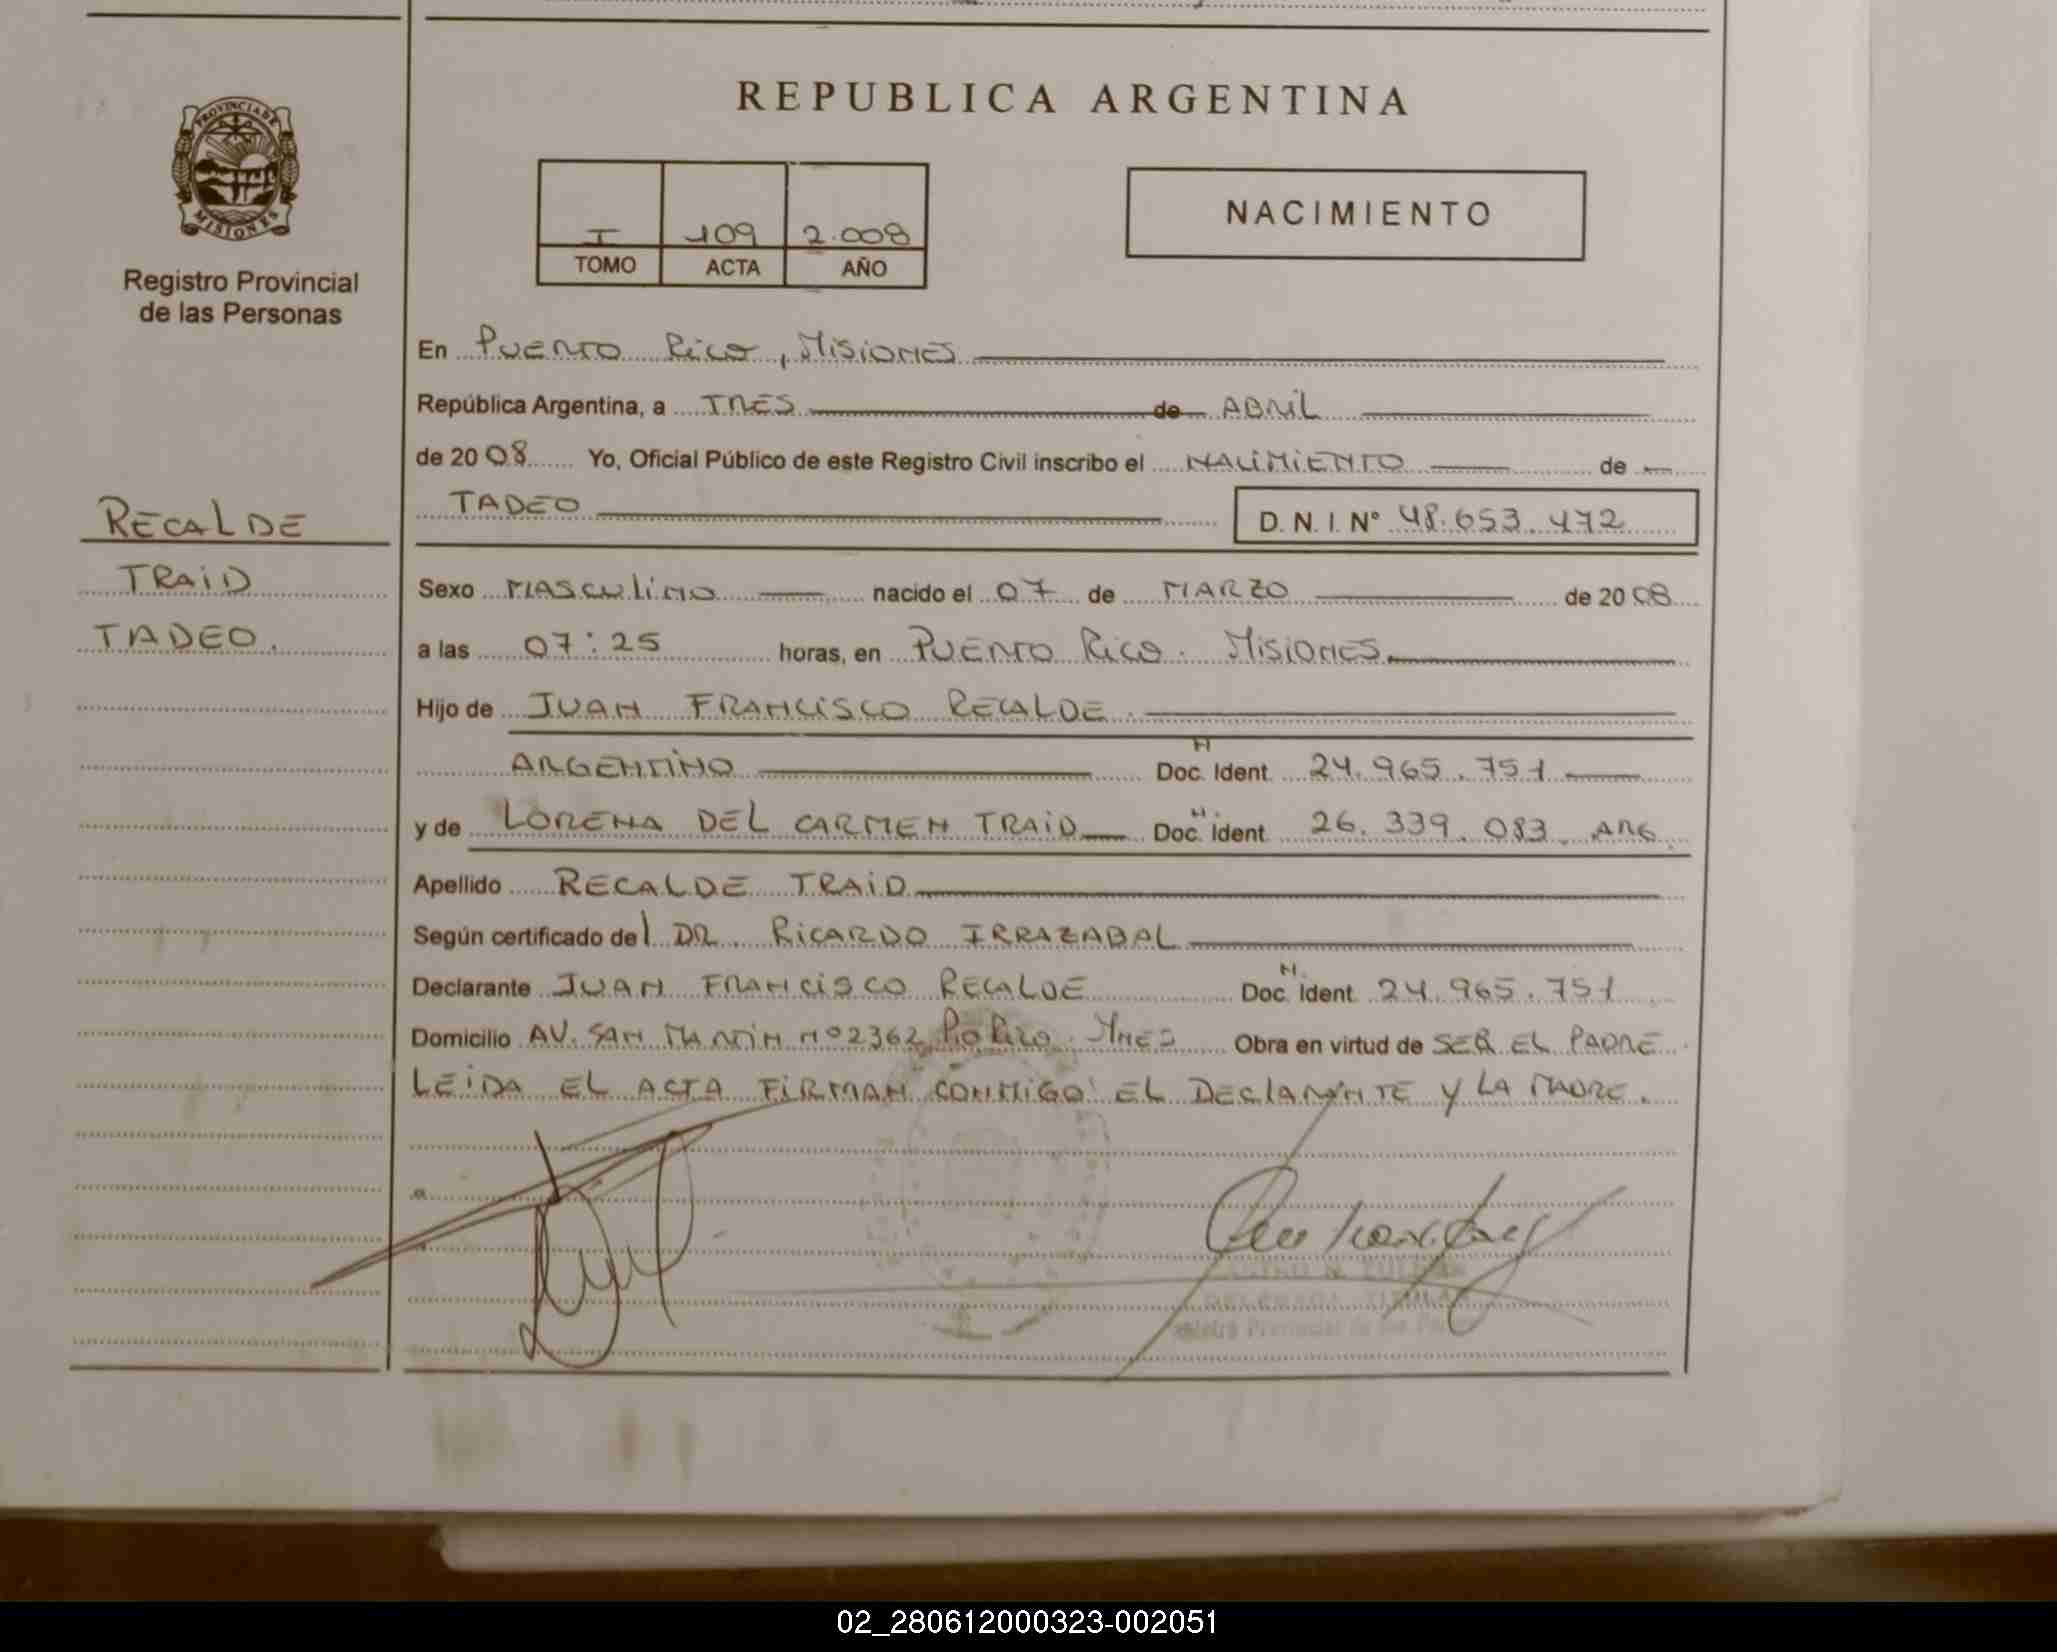 PROVINCIA DE
MISIONES
Registro Provincial
de las Personas
RECALDE
TRAID
TADEO.
REPUBLICA ARGENTINA
I 109 2.008
TOMO ACTA AÑO
NACIMIENTO
En PUERTO RICO, MISIONES
República Argentina, a TRES de ABRIL
de 2008 Yo, Oficial Público de este Registro Civil inscribo el NACIMIENTO de
TADEO D. N. I. N° 48.653.472
Sexo MASCULINO nacido el 07 de MARZO de 2008
a las 07:25 horas, en PUERTO RICO. MISIONES
Hijo de JUAN FRANCISCO RECALDE
ARGENTINO Doc. N Ident. 24.965.751
y de LORENA DEL CARMEN TRAID Doc. N. Ident. 26.339.083 ARG.
Apellido RECALDE TRAID
Según certificado del DR. RICARDO IRRAZABAL
Declarante JUAN FRANCISCO RECALDE Doc. N. Ident. 24.965.751
Domicilio AV. SAN MARTIN Nº 2362 Pto Rico. Mnes Obra en virtud de SER EL PADRE
LEIDA EL ACTA FIRMAN CONMIGO EL DECLARANTE Y LA MADRE.
DELEGADA TITULAR
Provincial de las
02_280612000323-002051